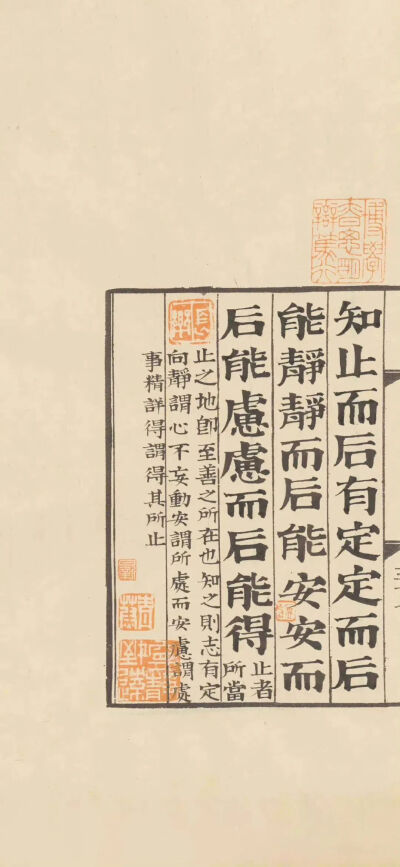 知止而后有定定而后
能靜靜而后能安安而
后能慮慮而后能得
止者
所當
止之地卽至善之所在也知之則志有定
向靜謂心不妄動安謂所處而安慮謂處
事精詳得謂得其所止